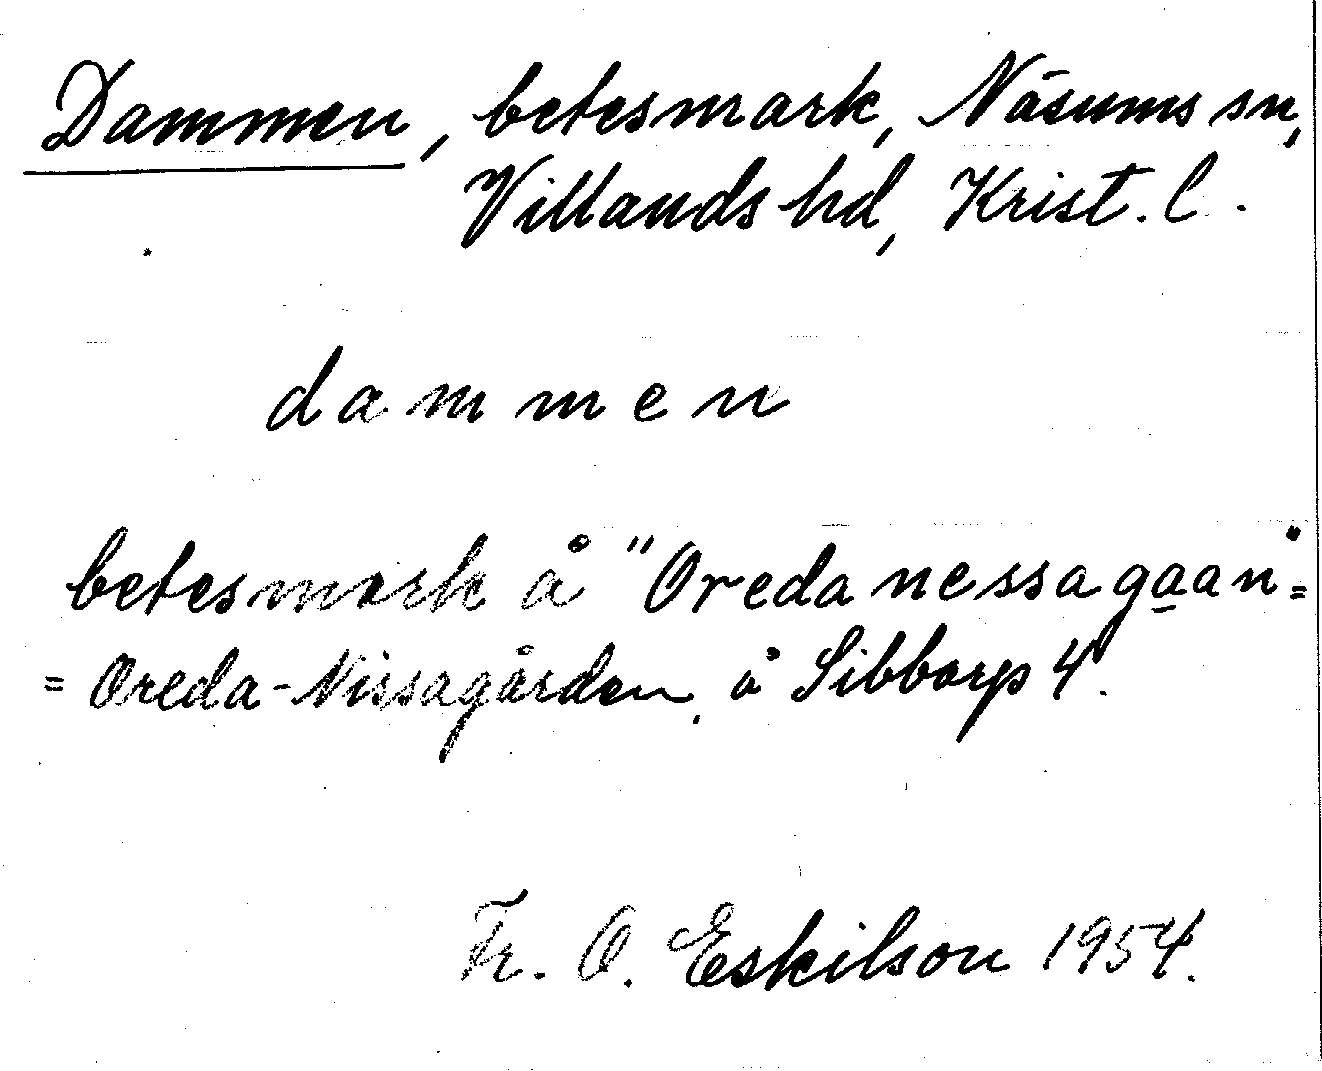 Dammen, betesmark, Näsums sn,
Villands hd, Krist. l.
dammen
betesmark å "Oreda nessagaan" =
= Oreda-Nissagården, å Sibborp 4.
Fr. O. Eskilson 1954.